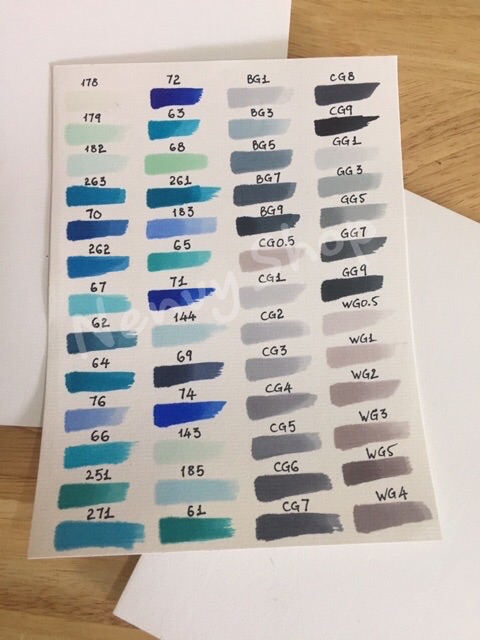 178 72 BG1 CG8
179 63 BG3 CG9
182 68 BG5 GG1
263 261 BG7 GG3
70 183 BG9 GG5
262 65 CG0.5 GG7
67 71 CG1 GG9
62 144 CG2 WG0.5
64 69 CG3 WG1
76 74 CG4 WG2
66 143 CG5 WG3
251 185 CG6 WG5
271 61 CG7 WG4
Nenvy Shop